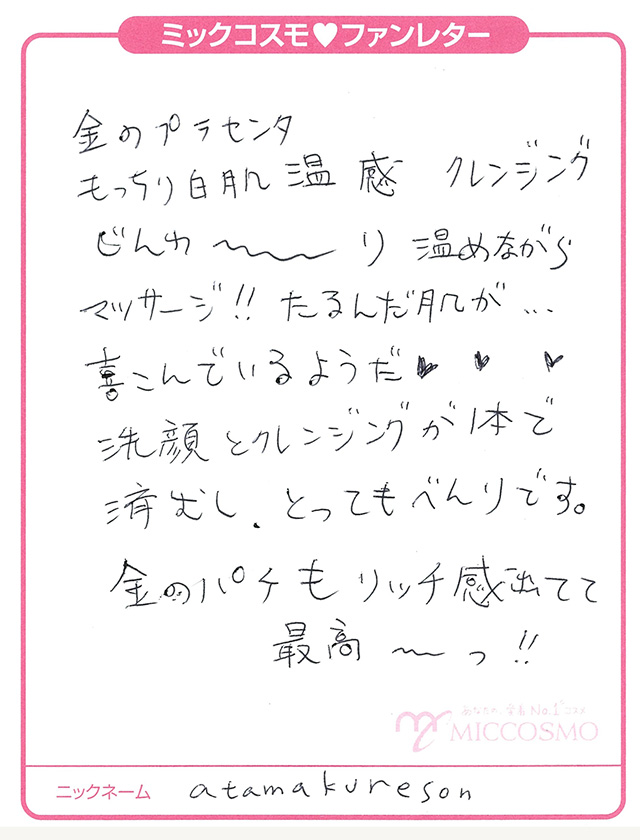 ミックコスモ♥ファンレター
金のプラセンタ
もっちり白肌 温感 クレンジング
じんわ〜〜〜り 温めながら
マッサージ!! たるんだ肌が...
喜こんでいるようだ♥ ♥ ♥
洗顔とクレンジングが1本で
済むし、とってもべんりです。
金のパケも リッチ感出てて
最高〜っ!!
あなたの、定番No.1コスメ
MICCOSMO
ニックネーム atamakureson